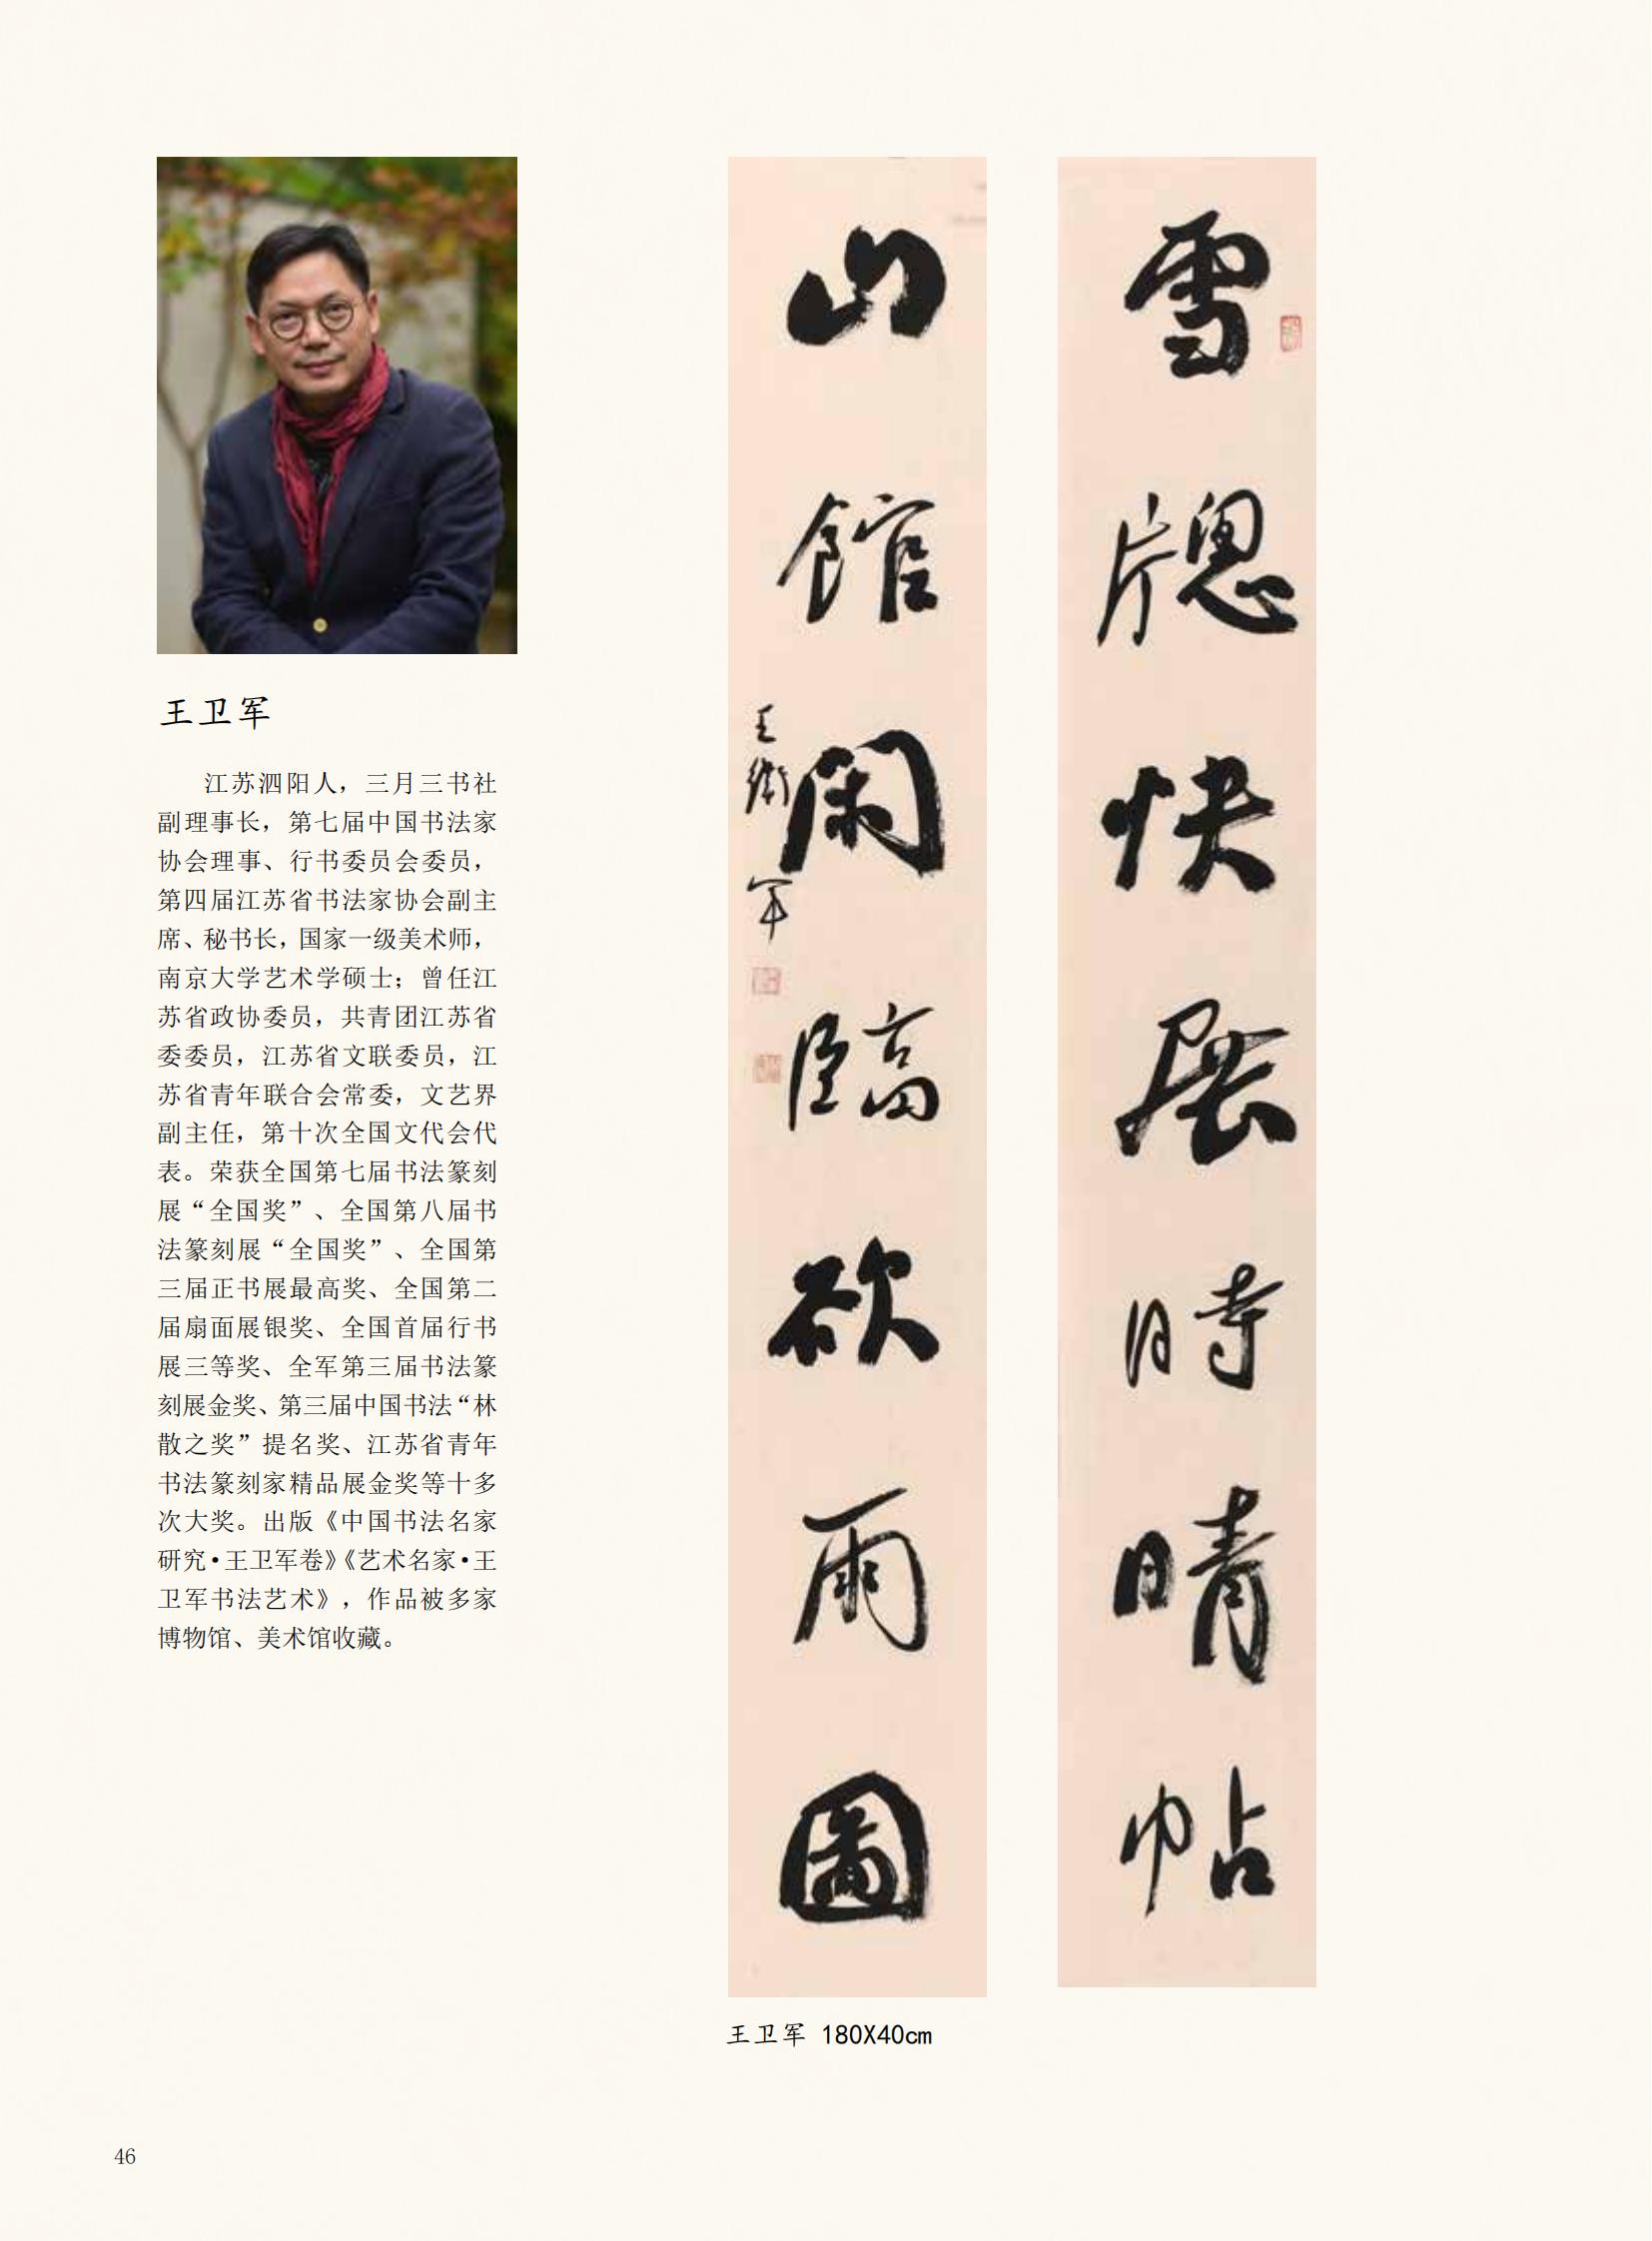 王卫军
江苏泗阳人，三月三书社
副理事长，第七届中国书法家
协会理事、行书委员会委员，
第四届江苏省书法家协会副主
席、秘书长，国家一级美术师，
南京大学艺术学硕士；曾任江
苏省政协委员，共青团江苏省
委委员，江苏省文联委员，江
苏省青年联合会常委，文艺界
副主任，第十次全国文代会代
表。荣获全国第七届书法篆刻
展“全国奖”、全国第八届书
法篆刻展“全国奖”、全国第
三届正书展最高奖、全国第二
届扇面展银奖、全国首届行书
展三等奖、全军第三届书法篆
刻展金奖、第三届中国书法“林
散之奖”提名奖、江苏省青年
书法篆刻家精品展金奖等十多
次大奖。出版《中国书法名家
研究·王卫军卷》《艺术名家·王
卫军书法艺术》，作品被多家
博物馆、美术馆收藏。
雪牎快展時晴帖
山館閑臨欲雨圖
王衛軍
王卫军 180X40cm
46